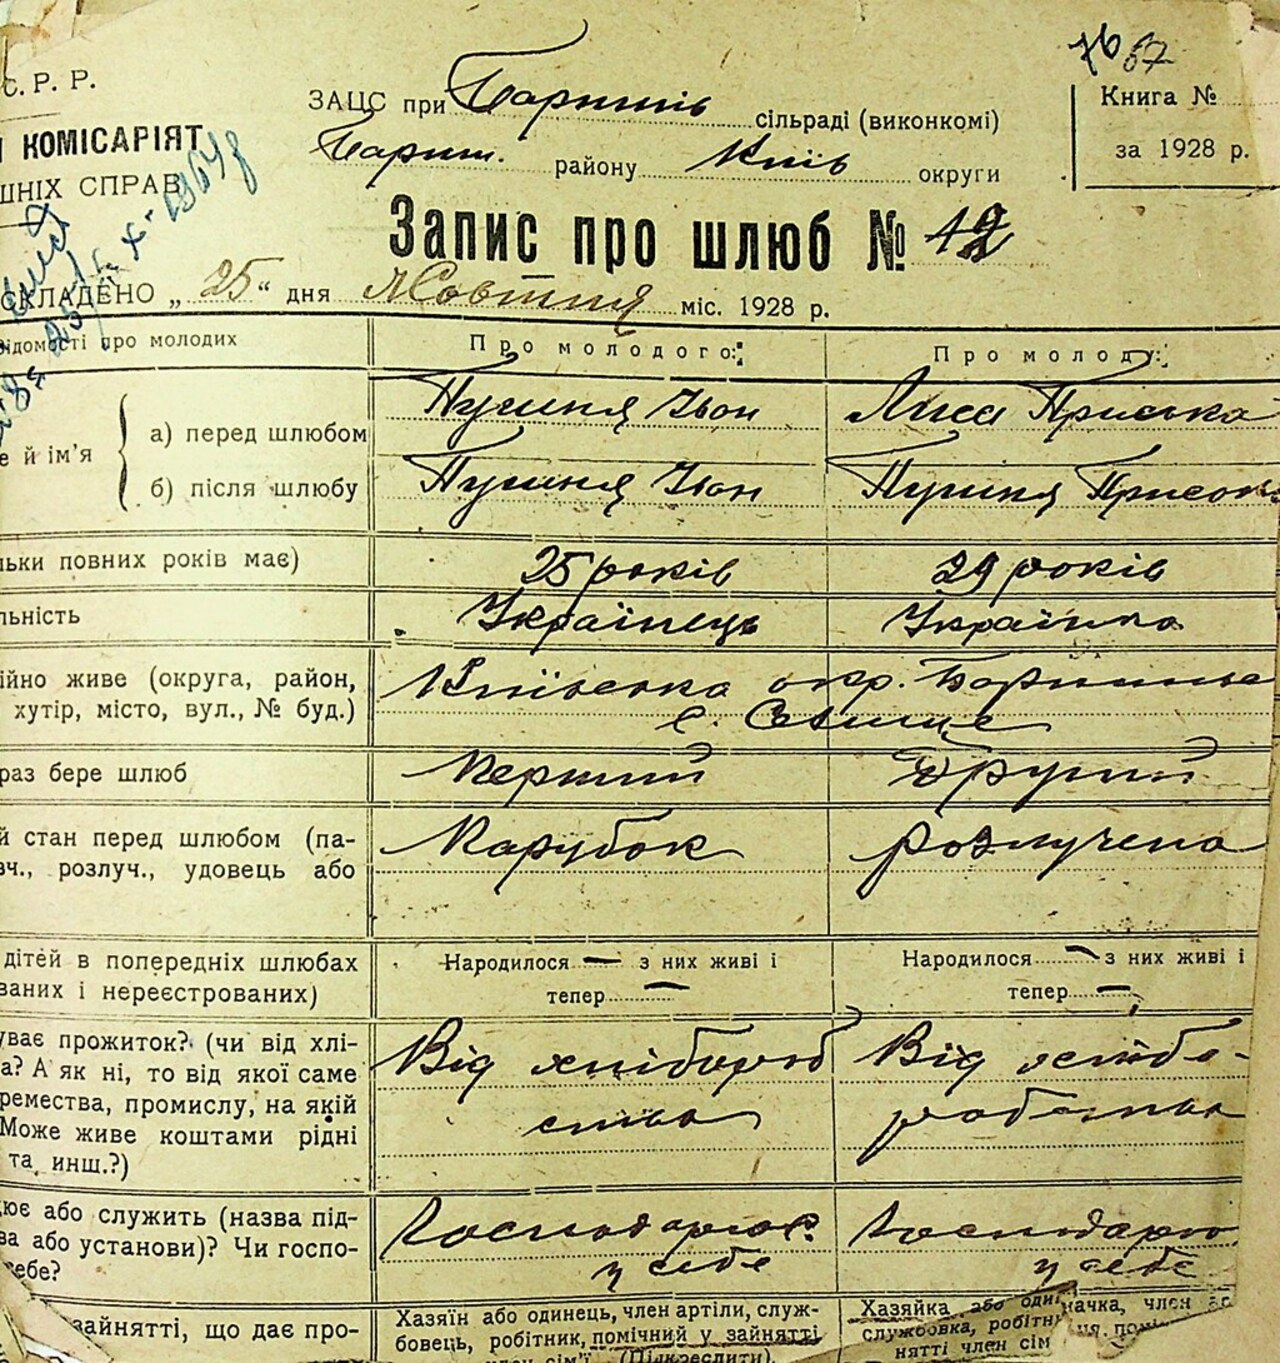 76 67
С. Р. Р.
ЗАЦС при Баришів сільраді (виконкомі)
Книга №
КОМІСАРІЯТ
Бариш. району Київ округи
за 1928 р.
ШНІХ СПРАВ
Запис про шлюб № 12
СКЛАДЕНО „ 25 “ дня Жовтня міс. 1928 р.
відомості про молодих
Про молодого:
Про молоду:
а) перед шлюбом
Пугиня Іван
Лиса Приська
е й ім’я
б) після шлюбу
Пугиня Іван
Пугиня
льки повних років має)
25 років
29 років
льність
Українець
Українка
ійно живе (округа, район,
Київська окр.
хутір, місто, вул., № буд.)
с.
раз бере шлюб
Перший
Другий
й стан перед шлюбом (па-
Парубок
розлучена
вч., розлуч., удовець або
дітей в попередніх шлюбах
Народилося — з них живі і
Народилося — з них живі і
ваних і нереєстрованих)
тепер —
тепер —
ває прожиток? (чи від хлі-
Від хлібороб
Від хлібо-
а? А як ні, то від якої саме
ремества, промислу, на якій
ства
робства
Може живе коштами рідні
та инш.?)
цює або служить (назва під-
Господарює
Господарює
ва або установи)? Чи госпо-
у себе
у себе
себе?
Хазяїн або одинець, член артіли, служ-
Хазяйка або оди начка, член ар
зайнятті, що дає про-
бовець, робітник, помічний у зайнятті
службовка, робітн
член сім’ї (Підкреслити).
нятті член сім